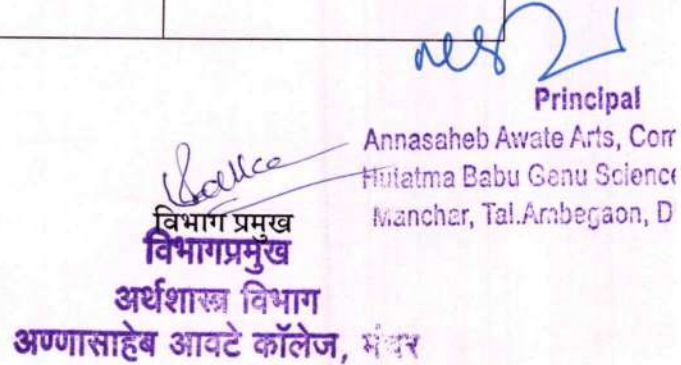 Principal
Annasaheb Awate Arts, Com
Hutatma Babu Genu Science
Manchar, Tal.Ambegaon, D
विभाग प्रमुख
विभागप्रमुख
अर्थशास्त्र विभाग
अण्णासाहेब आवटे कॉलेज, मंचर